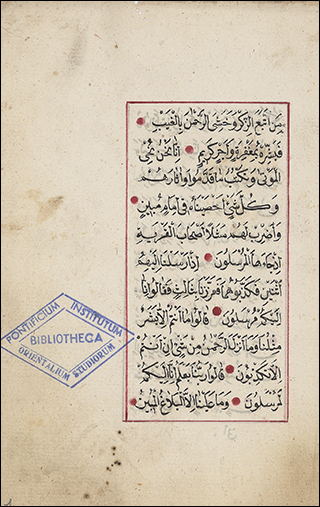 مَنِ اتَّبَعَ الذِّكْرَ وَخَشِيَ الرَّحْمٰنَ بِالْغَيْبِ
فَبَشِّرْهُ بِمَغْفِرَةٍ وَاَجْرٍ كَرِيمٍ اِنَّا نَحْنُ نُحْيِ
الْمَوْتٰى وَنَكْتُبُ مَا قَدَّمُوا وَاٰثَارَهُمْ
وَكُلَّ شَيْءٍ اَحْصَيْنَاهُ فِي اِمَامٍ مُبِينٍ
وَاضْرِبْ لَهُمْ مَثَلًا اَصْحَابَ الْقَرْيَةِ
اِذْ جَاءَهَا الْمُرْسَلُونَ اِذْ اَرْسَلْنَا اِلَيْهِمُ
اثْنَيْنِ فَكَذَّبُوهُمَا فَعَزَّزْنَا بِثَالِثٍ فَقَالُوا اِنَّا
اِلَيْكُمْ مُرْسَلُونَ قَالُوا مَا اَنْتُمْ اِلَّا بَشَرٌ
مِثْلُنَا وَمَا اَنْزَلَ الرَّحْمٰنُ مِنْ شَيْءٍ اِنْ اَنْتُمْ
اِلَّا تَكْذِبُونَ قَالُوا رَبُّنَا يَعْلَمُ اِنَّا اِلَيْكُمْ
لَمُرْسَلُونَ وَمَا عَلَيْنَا اِلَّا الْبَلَاغُ الْمُبِينُ
PONTIFICIUM INSTITUTUM
BIBLIOTHECA
ORIENTALIUM STUDIORUM